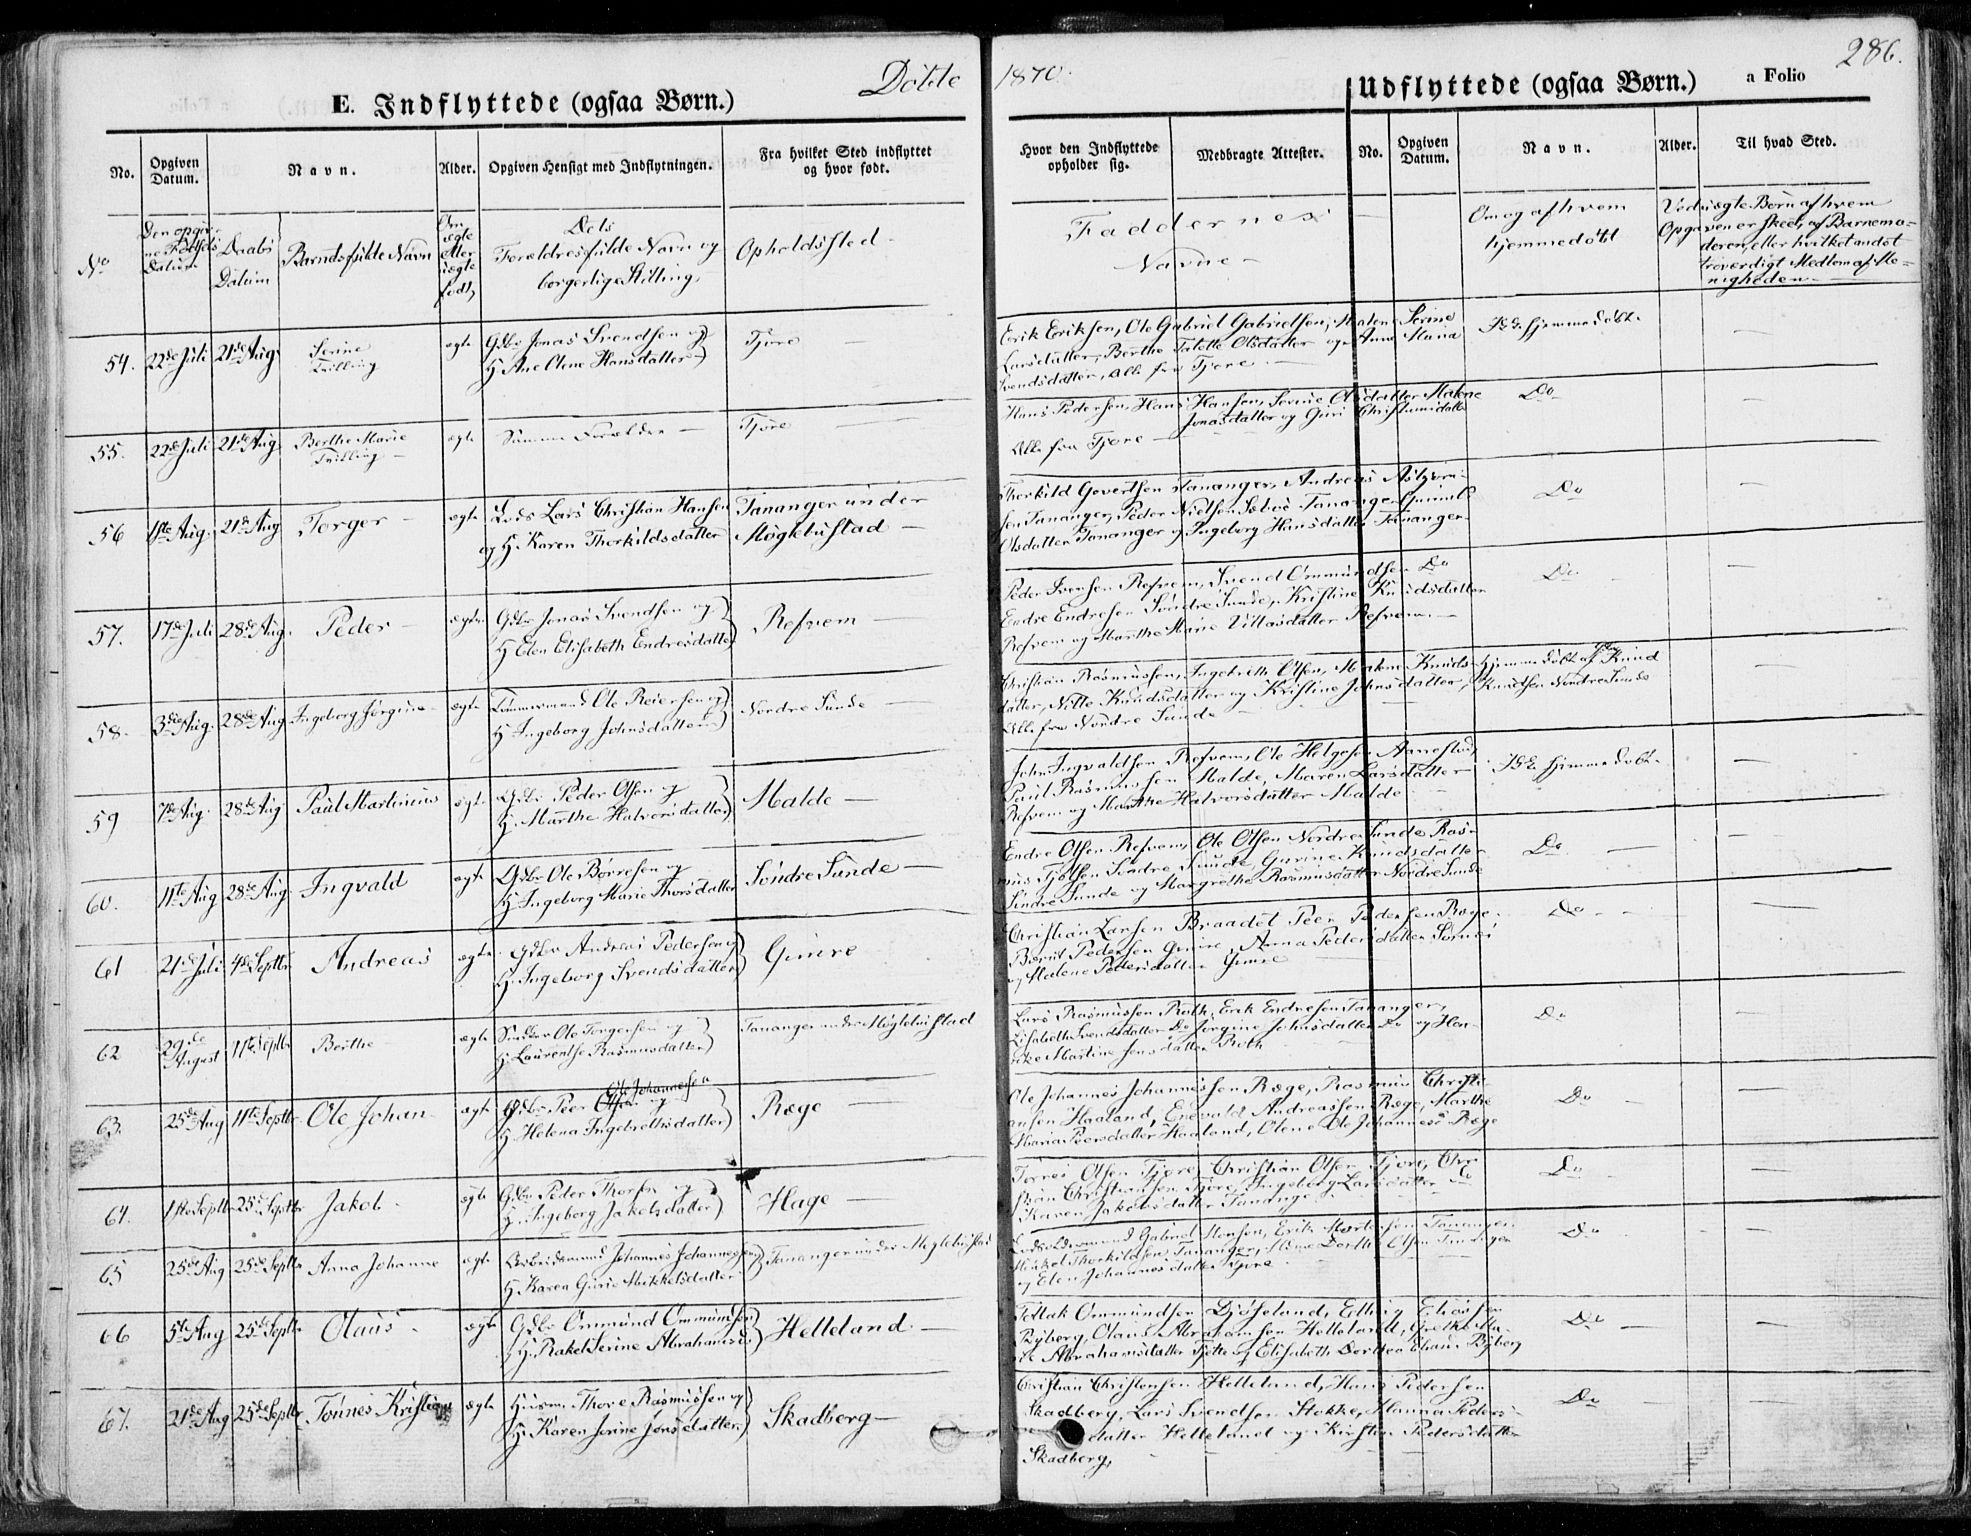 Døbte 1870.
286.
E. Indflyttede (ogsaa Børn.)
Udflyttede (ogsaa Børn.) a Folio
No. Opgiven Datum. Navn. Alder. Opgiven Hensigt med Indflytningen. Fra hvilket Sted indflyttet og hvor født.
Hvor den Indflyttede opholder sig. Medbragte Attester. No. Opgiven Datum. Navn. Alder. Til hvad Sted.
No Den opgivne Fødsels Datum Daabs Datum Barnets fulde Navn Om ægte eller uægte født, Dets Forældres fulde Navn og borgerlige Stilling, Opholdssted
Faddernes Navne Om og af hvem hjemmedøbt Ved uægte Børn af hvem Opgaven er skeet, af Barnemoderen, eller hvilket andet troverdigt Medlem af Menigheden
54. 22de Juli 21de Aug. Serine Tvilling ægte Gdbr Jonas Svendsen og H Ane Olene Hansdatter Tjore
Erik Eriksen, Ole Gabriel Gabrielsen, Malene Serine
Larsdatter, Berthe Tolette Olsdatter og Anne Maria
Svendsdatter, Alle fra Tjore
Ikke hjemmedøbt.
55. 22de Juli 21de Aug Berthe Marie Tvilling ægte Samme Forældre Tjore
Hans Pedersen, Hans Hansen, Serine Olsdatter Malene
Jonasdatter og Guri Christiansdatter
Alle fra Tjore
Do
56 1ste Aug. 21de Aug Torger ægte Lods Lars Christian Hansen og H. Karen Thorkildsdatter Tananger under Møglebustad
Thorkild Govertsen Tananger, Andreas
sen Tananger, Peder Nielsen Tananger
Olsdatter Tananger og Ingeborg Hansdatter Tananger
Do
57. 17de Juli 28de Aug. Peder ægte Gdbr Jonas Svendsen og H Elen Elisabeth Endresdatter Refvem
Peder Iversen Refvem, Svend Ommundsen Do
Endre Endresen Søndre Sunde, Kristine Knudsdatter
Refvem og Marthe Marie Refvem.
Do
58. 3die Aug. 28de Aug Ingeborg Jørgine ægte Tømmermand Ole Reiersen og H Ingeborg Johnsdatter Nordre Sunde
Christian Rasmussen, Ingebreth Olsen, Malene Knuds-
datter, Nille Knudsdatter og Kristine Johnsdatter,
Alle fra Nordre Sunde
Hjemmedøbt af Knud
Knudsen Nordre Sunde
59 7de Aug. 28de Aug Paul Martinius ægte Gdbr Peder Olsen og H. Marthe Halvorsdatter Malde
John Ingvaldsen Refvem, Ole Helgesen
Paul Rasmussen Malde, Maren Larsdatter
Refvem og Marthe Halvorsdatter Malde
Ikke hjemmedøbt.
60. 11te Aug 28de Aug. Ingvald ægte Gdbr Ole Børresen og H Ingeborg Marie Thorsdatter Søndre Sunde
Endre Olsen Refvem, Ole Olsen Nordre Sunde Ras-
mus Olsen Søndre Sunde, Gurine Knudsdatter
Søndre Sunde og Margrethe Rasmusdatter Nordre Sunde
Do
61 21de Juli 4de Septbr Andreas ægte Gdbr Andreas Pedersen og H. Ingeborg Svendsdatter Gimre
Christian Larsen Braadet Peer Pedersen Ræge
Bernt Pedersen Gimre, Anna Pedersdatter
og Malene Pedersdatter Gimre
Do
62 29de August 11te Septbr Berthe ægte Ole Torgersen og H Laurentse Rasmusdatter Tananger under Møglebustad
Lars Rasmussen Roth, Erik Endresen Tananger,
Elisabeth Svendsdatter Do Jorgine Johnsdatter Do og Hen-
rike Martine Jensdatter Roth
Do
63. 25de Aug 11te Septbr Ole Johan ægte Gdbr Peer Ole Johannesen og H Helena Ingebrethsdatter Ræge
Ole Johannes Johannessen Ræge, Rasmus Christi-
ansen Haaland, Enevald Andreassen Ræge, Marthe
Maria Peersdatter Haaland, Olene Ole Johannes Ræge
Do
64. 1ste Septbr 25de Septbr Jakob ægte Gdbr Peder Thorsen og H. Ingeborg Jakobsdatter Hage
Tørres Olsen Tjore, Christian Olsen Tjore, Chri-
stian Christiansen Tjore, Ingeborg Larsdatter Do
Karen Jakobsdatter Tananger
Do
65 25de Aug 25de Septbr Anna Johanne ægte Arbeidsmand Johannes Johannessen H Karen Gurie Mikkelsdatter Tananger under Møglebustad
Gabriel Monsen, Erik Mortensen Tananger,
Mikkel Thorkildsen Tananger, Olsen Tananger
og Elen Johannesdatter Tjore
Do
66 5te Aug 25de Septbr Olaus ægte Gdbr Ommund Ommundsen H. Rakel Serine Abrahamsd. Helleland
Tollak Ommundsen Eliassen
Byberg, Olaus Abrahamsen Helleland, Grethe Ma-
rie Abrahamsdatter Tjotte og Elisabeth Dorthea Byberg
Do
67. 21de Aug 25de Septbr Tønnes Kristian ægte Husm. Thore Rasmussen og H. Karen Serine Jonsdatter Skadberg
Christian Christensen Helleland, Hans Pedersen
Skadberg, Lars Svendsen Stokke, Hanna Peders-
datter Helleland og Kirsten Pedersdatter
Skadberg,
Do